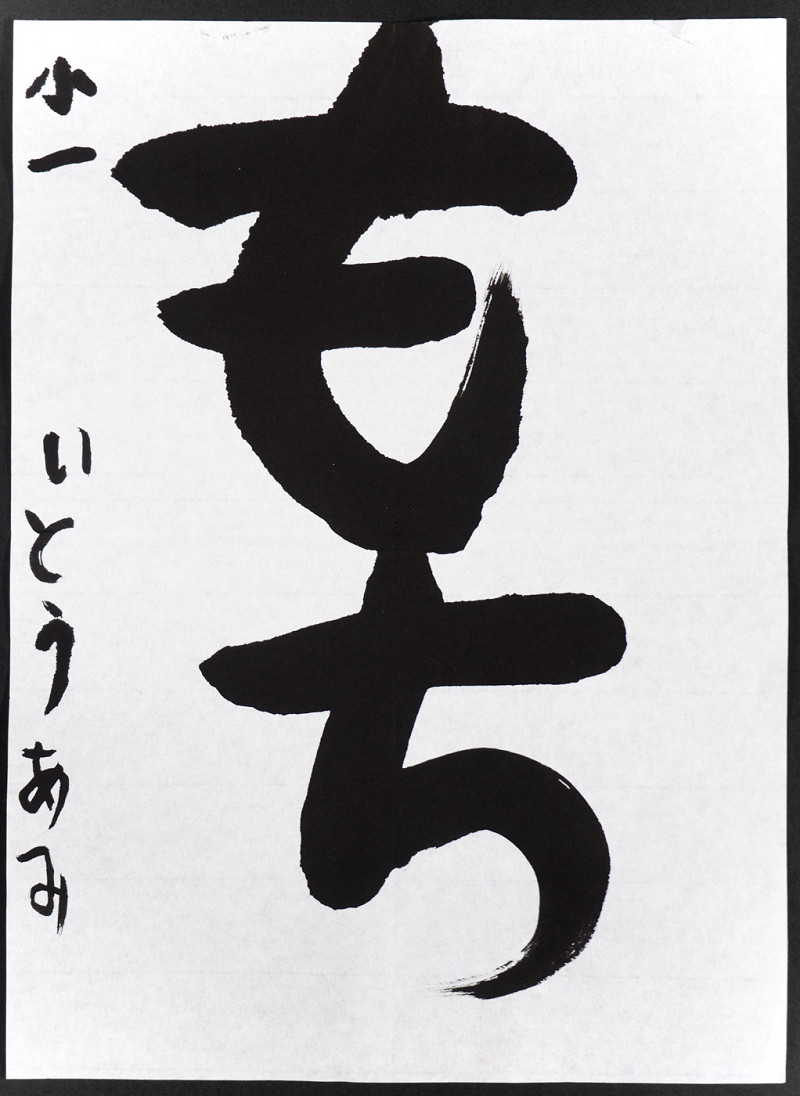 もち
小一 いとうあみ